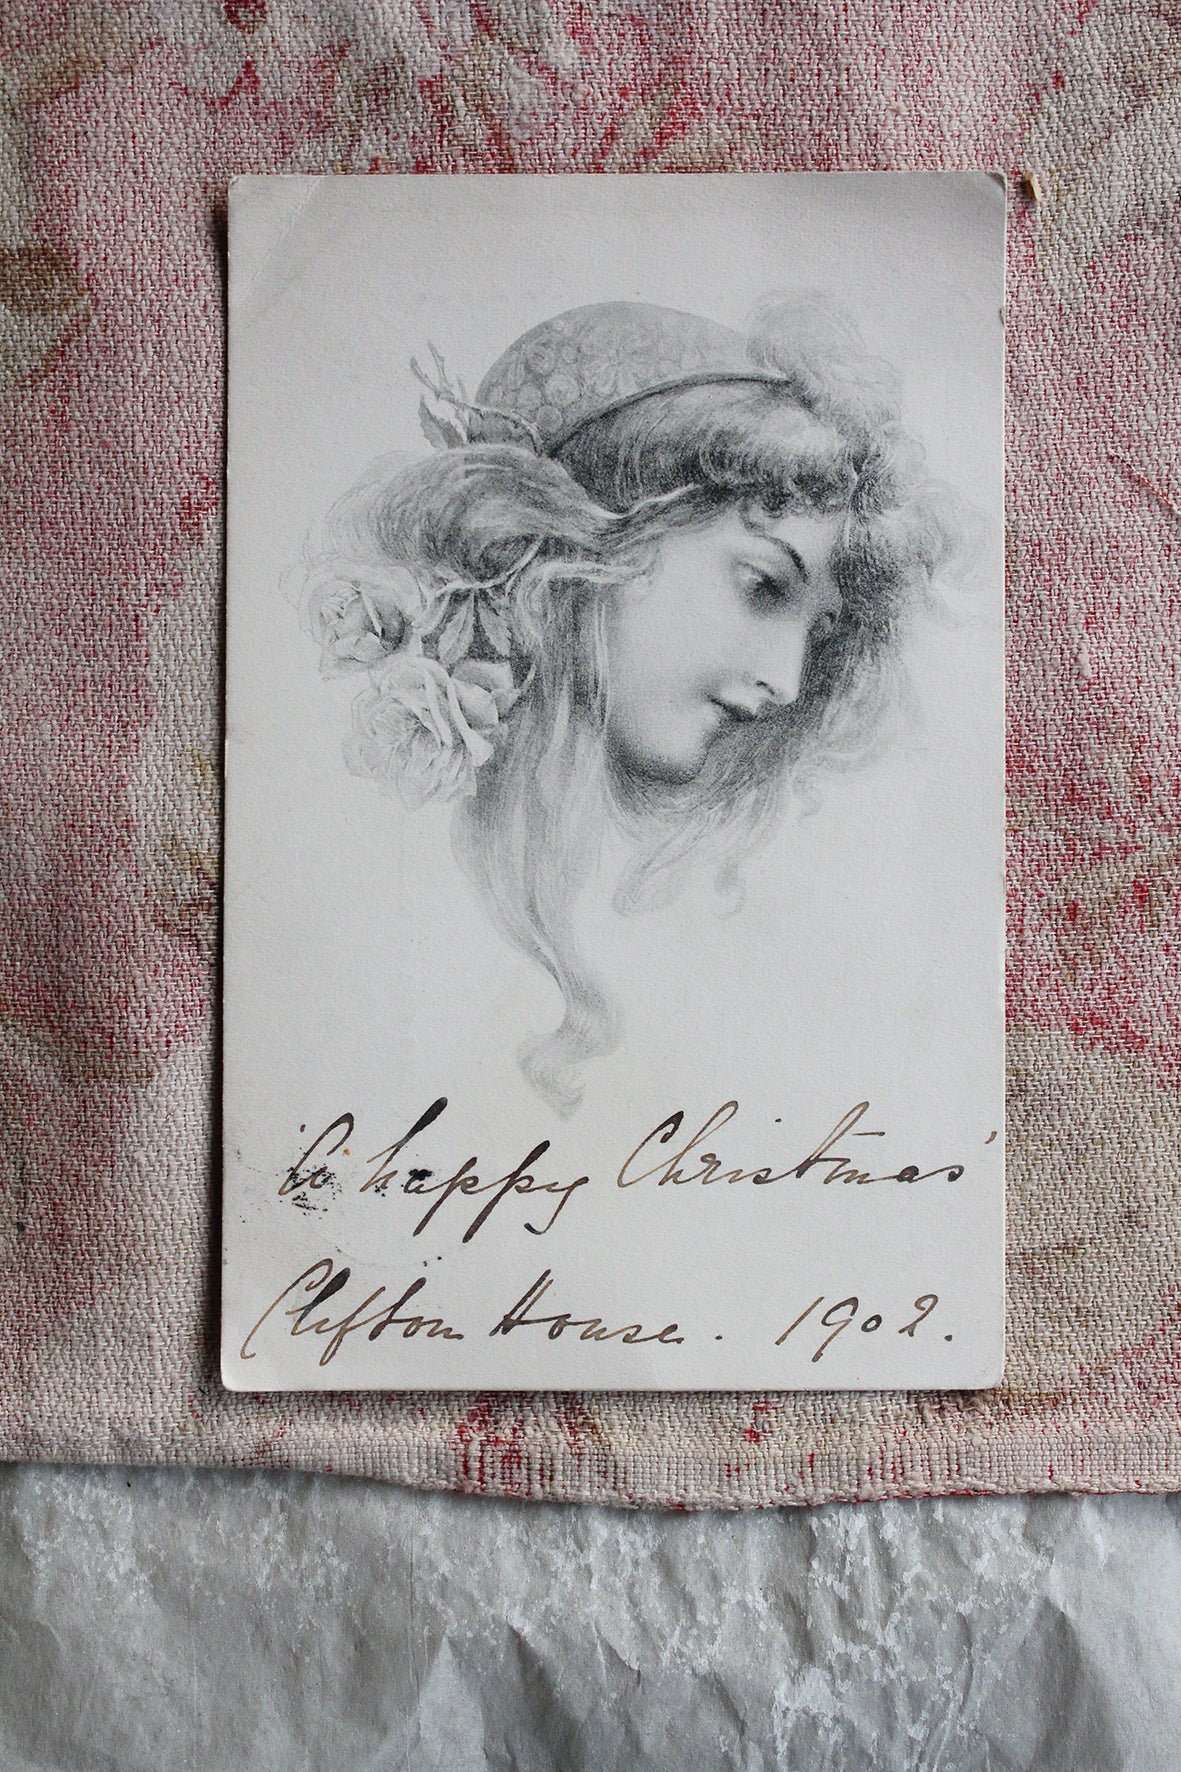 'A happy Christmas'
Clifton House. 1902.